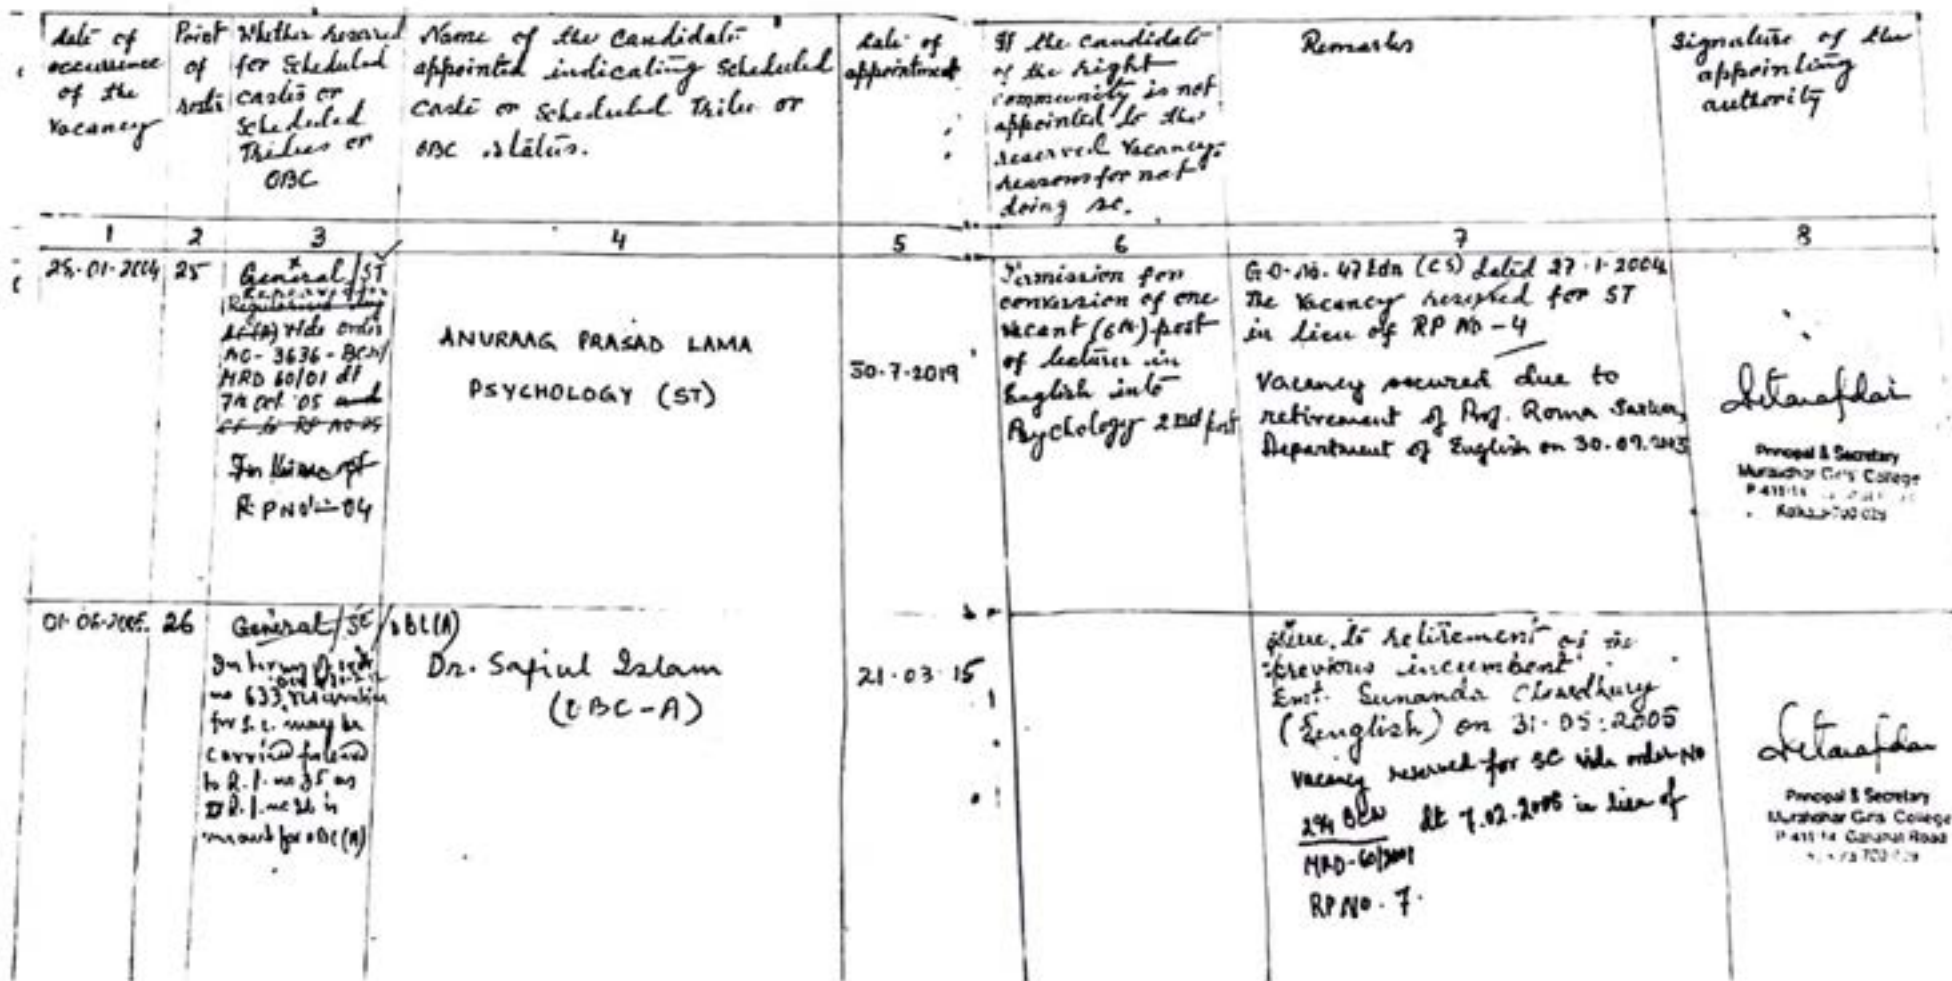 date of
occurrence
of the
vacancy
Point
of
roster
Whether reserved
for Scheduled
castes or
Scheduled
Tribes or
OBC
Name of the Candidate
appointed indicating Scheduled
Caste or Scheduled Tribe or
OBC status.
date of
appointment
If the candidate
of the right
community is not
appointed to the
reserved vacancy,
reasons for not
doing so.
Remarks
Signature of the
appointing
authority
1 2 3 4 5 6 7 8
-01-2004
25
General/ST
vide order
NO- 3636-BCW/
MRD 60/01 dt
7th Oct '05 and
R.P NO - 04
ANURAAG PRASAD LAMA
PSYCHOLOGY (ST)
30-7-2019
Permission for
conversion of one
vacant (6th) post
of lecturer in
English into
Psychology 2nd post
G.O. No. 47 Edn (CS) dated 27-1-2004
The vacancy reserved for ST
in lieu of RP No - 4
Vacancy occured due to
retirement of Prof. Roma Sarkar,
Department of English on 30.09.2003
Principal & Secretary
Muralidhar Girls' College
P-411/14
Kolkata-700 029
01-06-2005.
26
General/SC/OBC(A)
In terms of
no 633, reservation
for S.C. may be
carried forward
to R.P. no 35 as
R.P. no 26 is
meant for OBC(A)
Dr. Safiul Islam
(OBC-A)
21-03-15
Due to retirement of the
previous incumbent
Smt. Sunanda Chowdhury
(English) on 31-05-2005
Vacancy reserved for SC vide order No
294 BCW dt 7.02.2006 in lieu of
MRD-60/2001
RP No. 7.
Principal & Secretary
Muralidhar Girls College
P-411/14 Gariahat Road
700 029